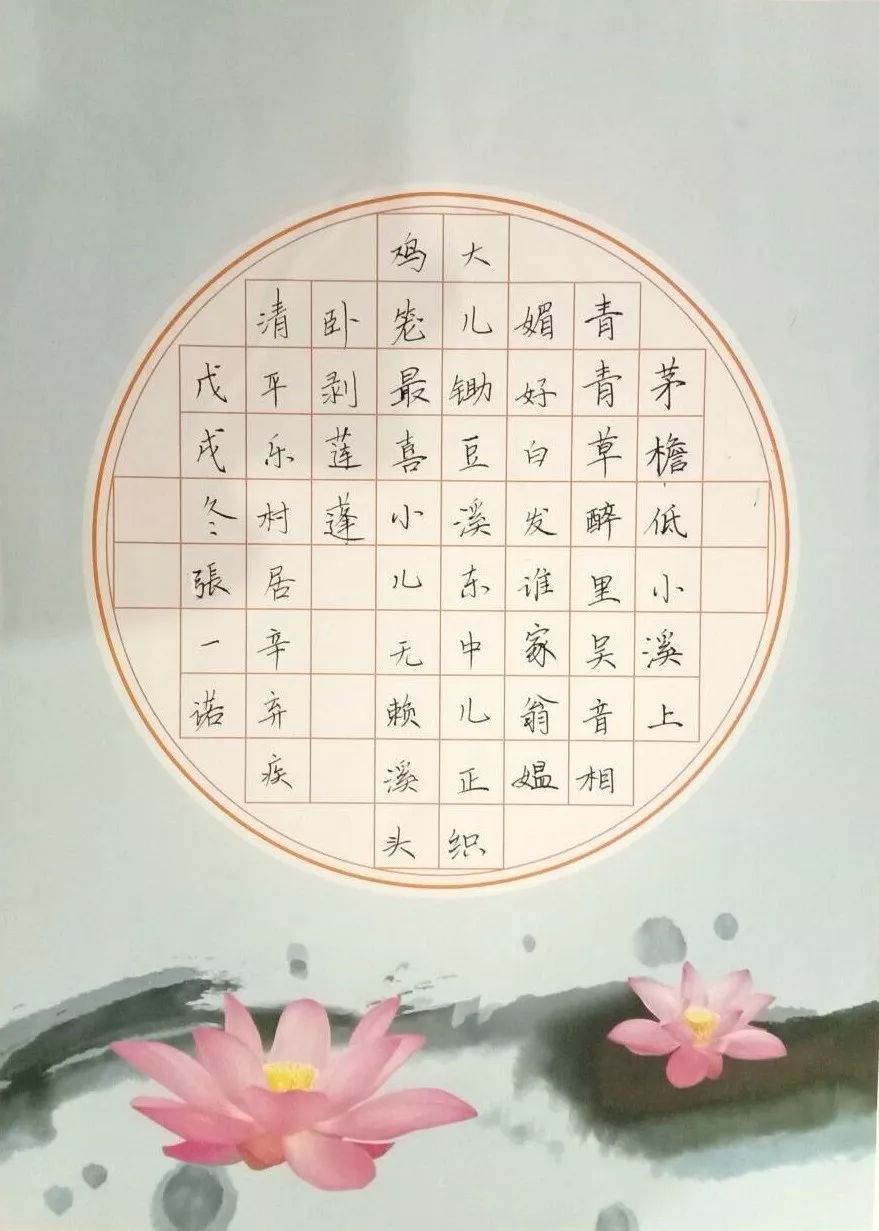 茅檐低小溪上
青青草醉里吴音相
媚好白发谁家翁媪
大儿锄豆溪东中儿正织
鸡笼最喜小儿无赖溪头
卧剥莲蓬
清平乐村居辛弃疾
戊戌冬張一诺